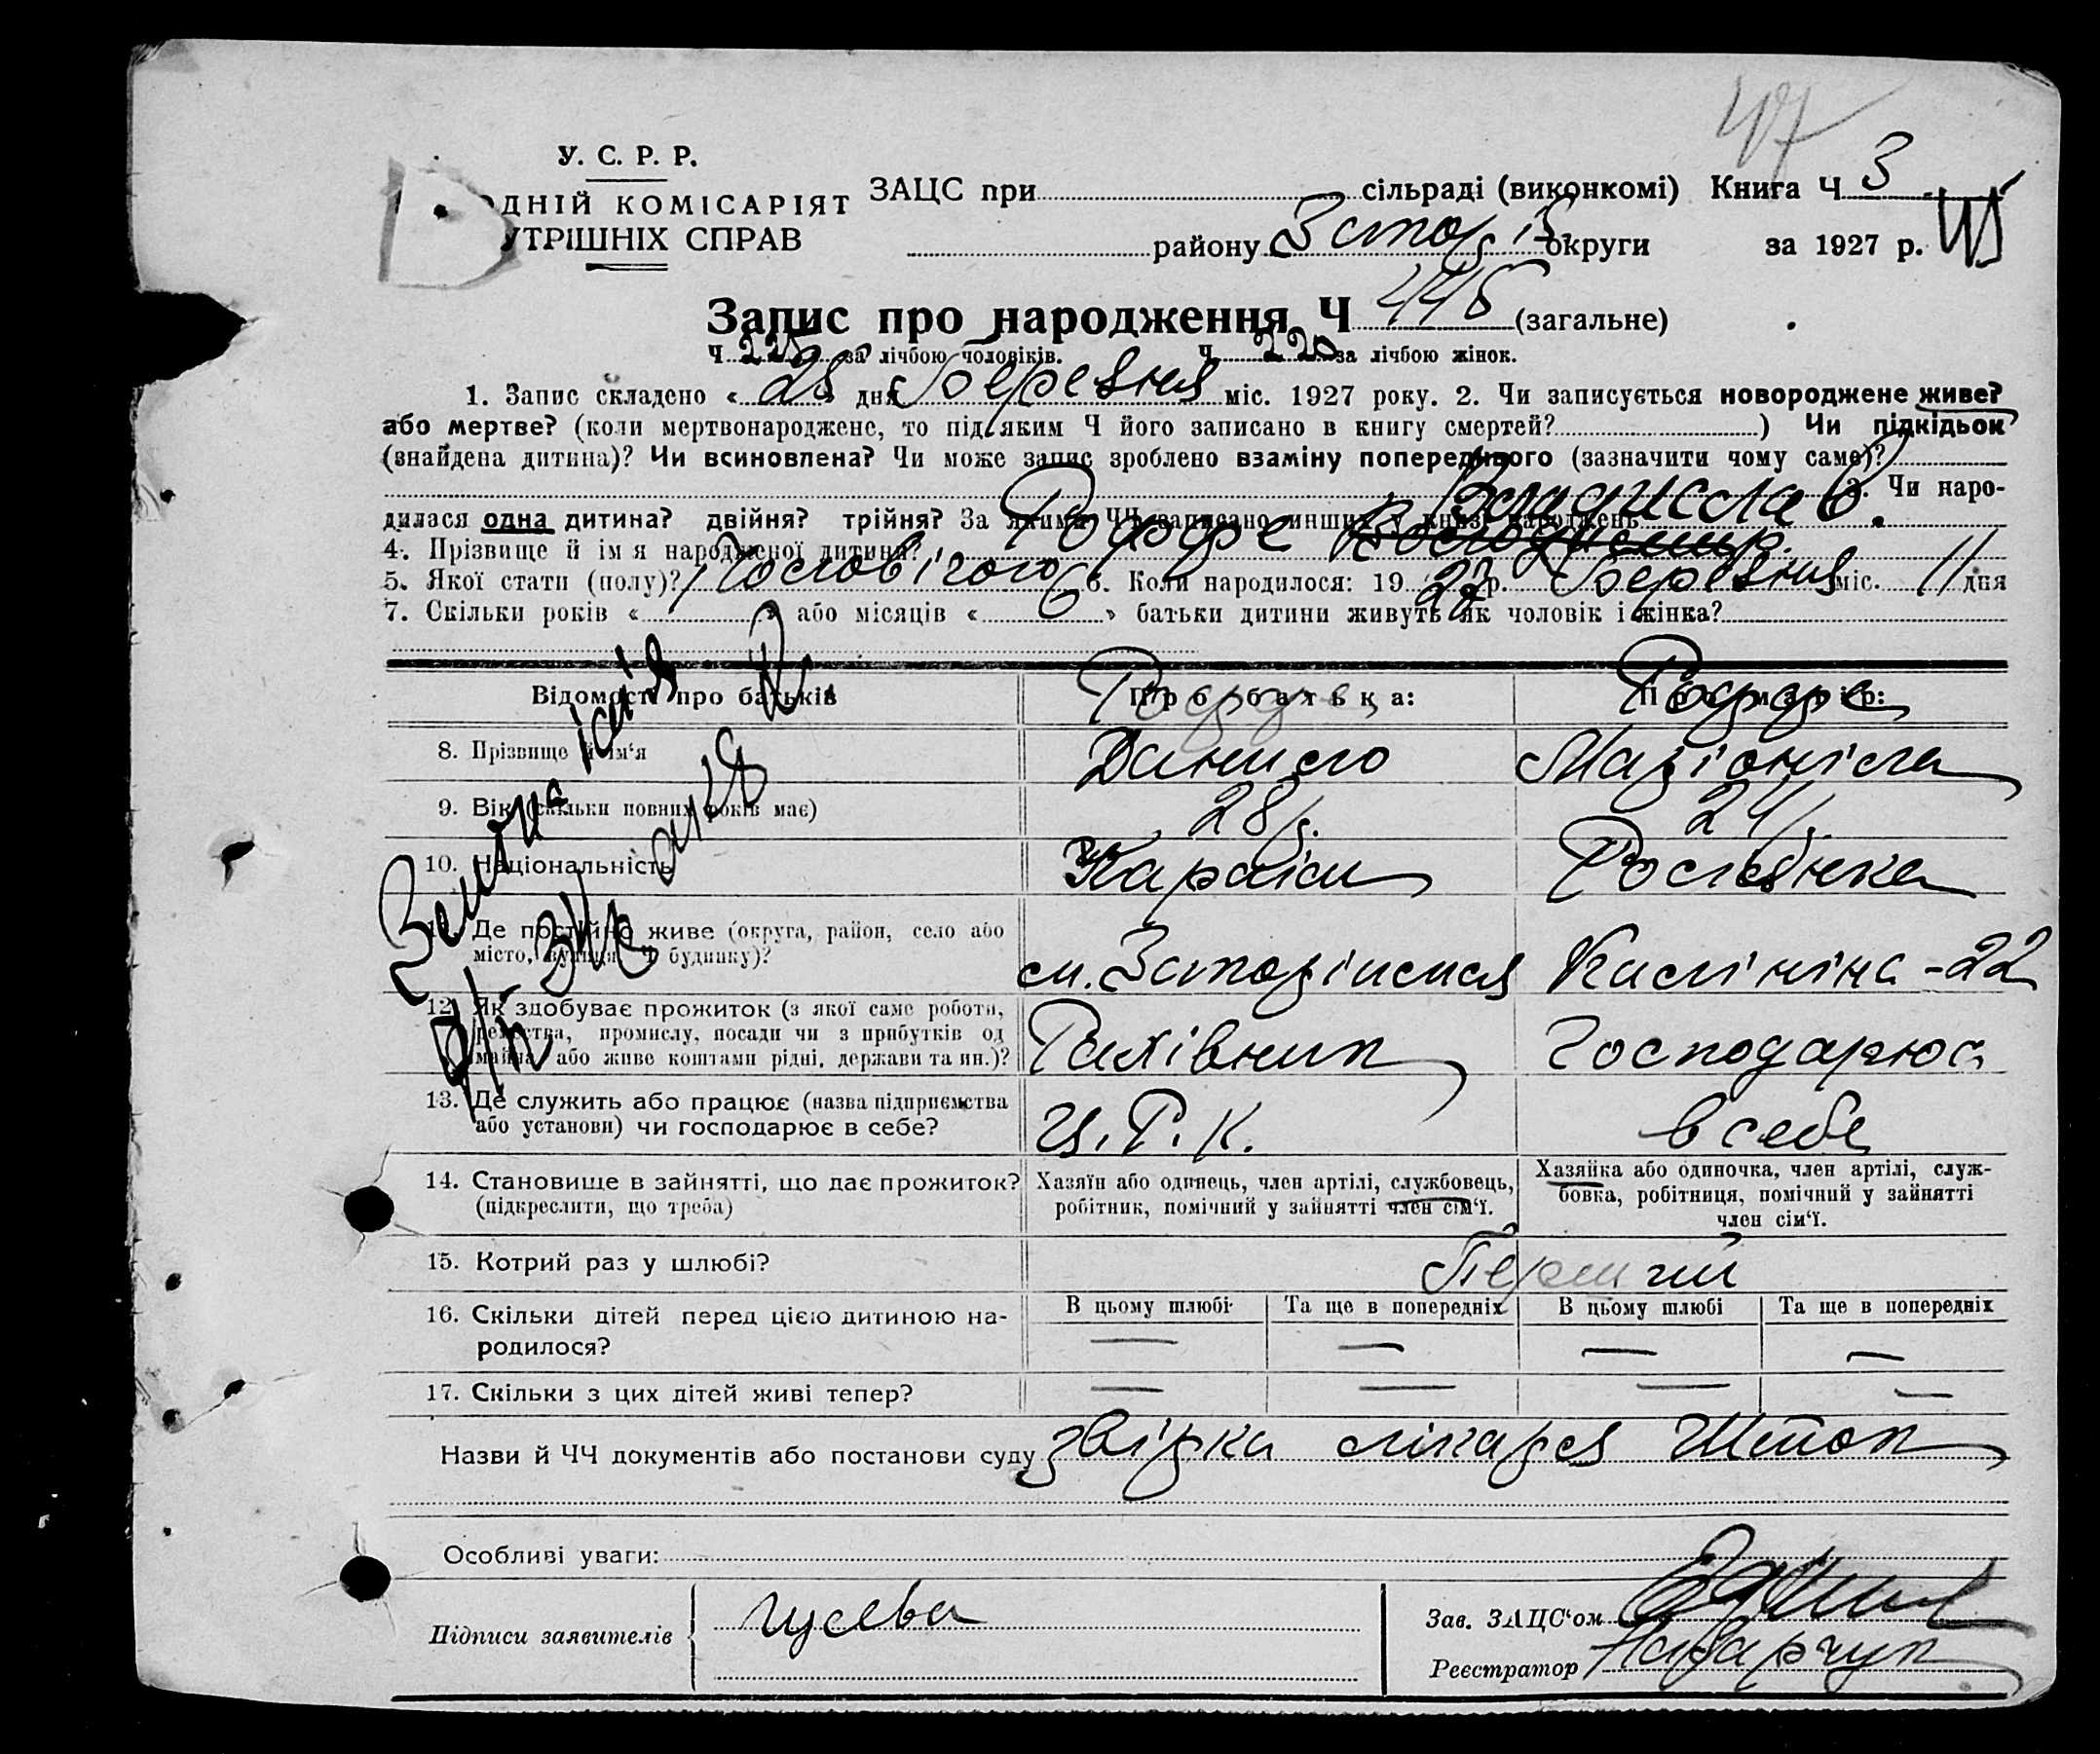 47
У. С. Р. Р.
ОДНІЙ КОМІСАРІЯТ
УТРІШНІХ СПРАВ
ЗАЦС при сільраді (виконкомі) Книга Ч 3
району Запоріз. округи за 1927 р.
Запис про народження Ч 445 (загальне)
Ч 225 за лічбою чоловіків. Ч 220 за лічбою жінок.
1. Запис складено « 28 » дня березня міс. 1927 року. 2. Чи записується новороджене живе?
або мертве? (коли мертвонароджене, то під яким Ч його записано в книгу смертей? ) Чи підкідьок
(знайдена дитина)? Чи всиновлена? Чи може запис зроблено взаміну попереднього (зазначити чому саме)?
Владислав. 3. Чи наро-
дилася одна дитина? двійня? трійня? За якими ЧЧ записано инших у книзі народжень
4. Прізвище й ім'я народженої дитини? Рофе
5. Якої стати (полу)? Чоловічого 6. Коли народилося: 1927 р. березня міс. 11 дня
7. Скільки років « » або місяців « 6 » батьки дитини живуть як чоловік і жінка?
Відомості про батьків Про батька: Про матір:
Рофе Рофе
8. Прізвище й ім'я Данило Маріоніла
9. Вік (скільки повних років має) 28 р. 24 р.
10. Національність Караїм Росіянка
11. Де постійно живе (округа, район, село або
місто, вулиця Ч будинку)? м. Запоріжжя Калініна - 22
12. Як здобуває прожиток (з якої саме роботи,
ремества, промислу, посади чи з прибутків од
майна або живе коштами рідні, держави та ин.)? Рахівник Господарює
13. Де служить або працює (назва підприємства
або установи) чи господарює в себе? Ц. Р. К. в себе
14. Становище в зайнятті, що дає прожиток?
(підкреслити, що треба)
Хазяїн або одинець, член артілі, службовець,
робітник, помічний у зайнятті член сім'ї.
Хазяйка або одиночка, член артілі, служ-
бовка, робітниця, помічний у зайнятті
член сім'ї.
15. Котрий раз у шлюбі? Перший
16. Скільки дітей перед цією дитиною на-
родилося?
В цьому шлюбі Та ще в попередніх В цьому шлюбі Та ще в попередніх
— — — —
17. Скільки з цих дітей живі тепер? — — — —
Назви й ЧЧ документів або постанови суду звірка лікаря
Особливі уваги:
Підписи заявителів Гусева
Зав. ЗАЦС'ом
Реєстратор